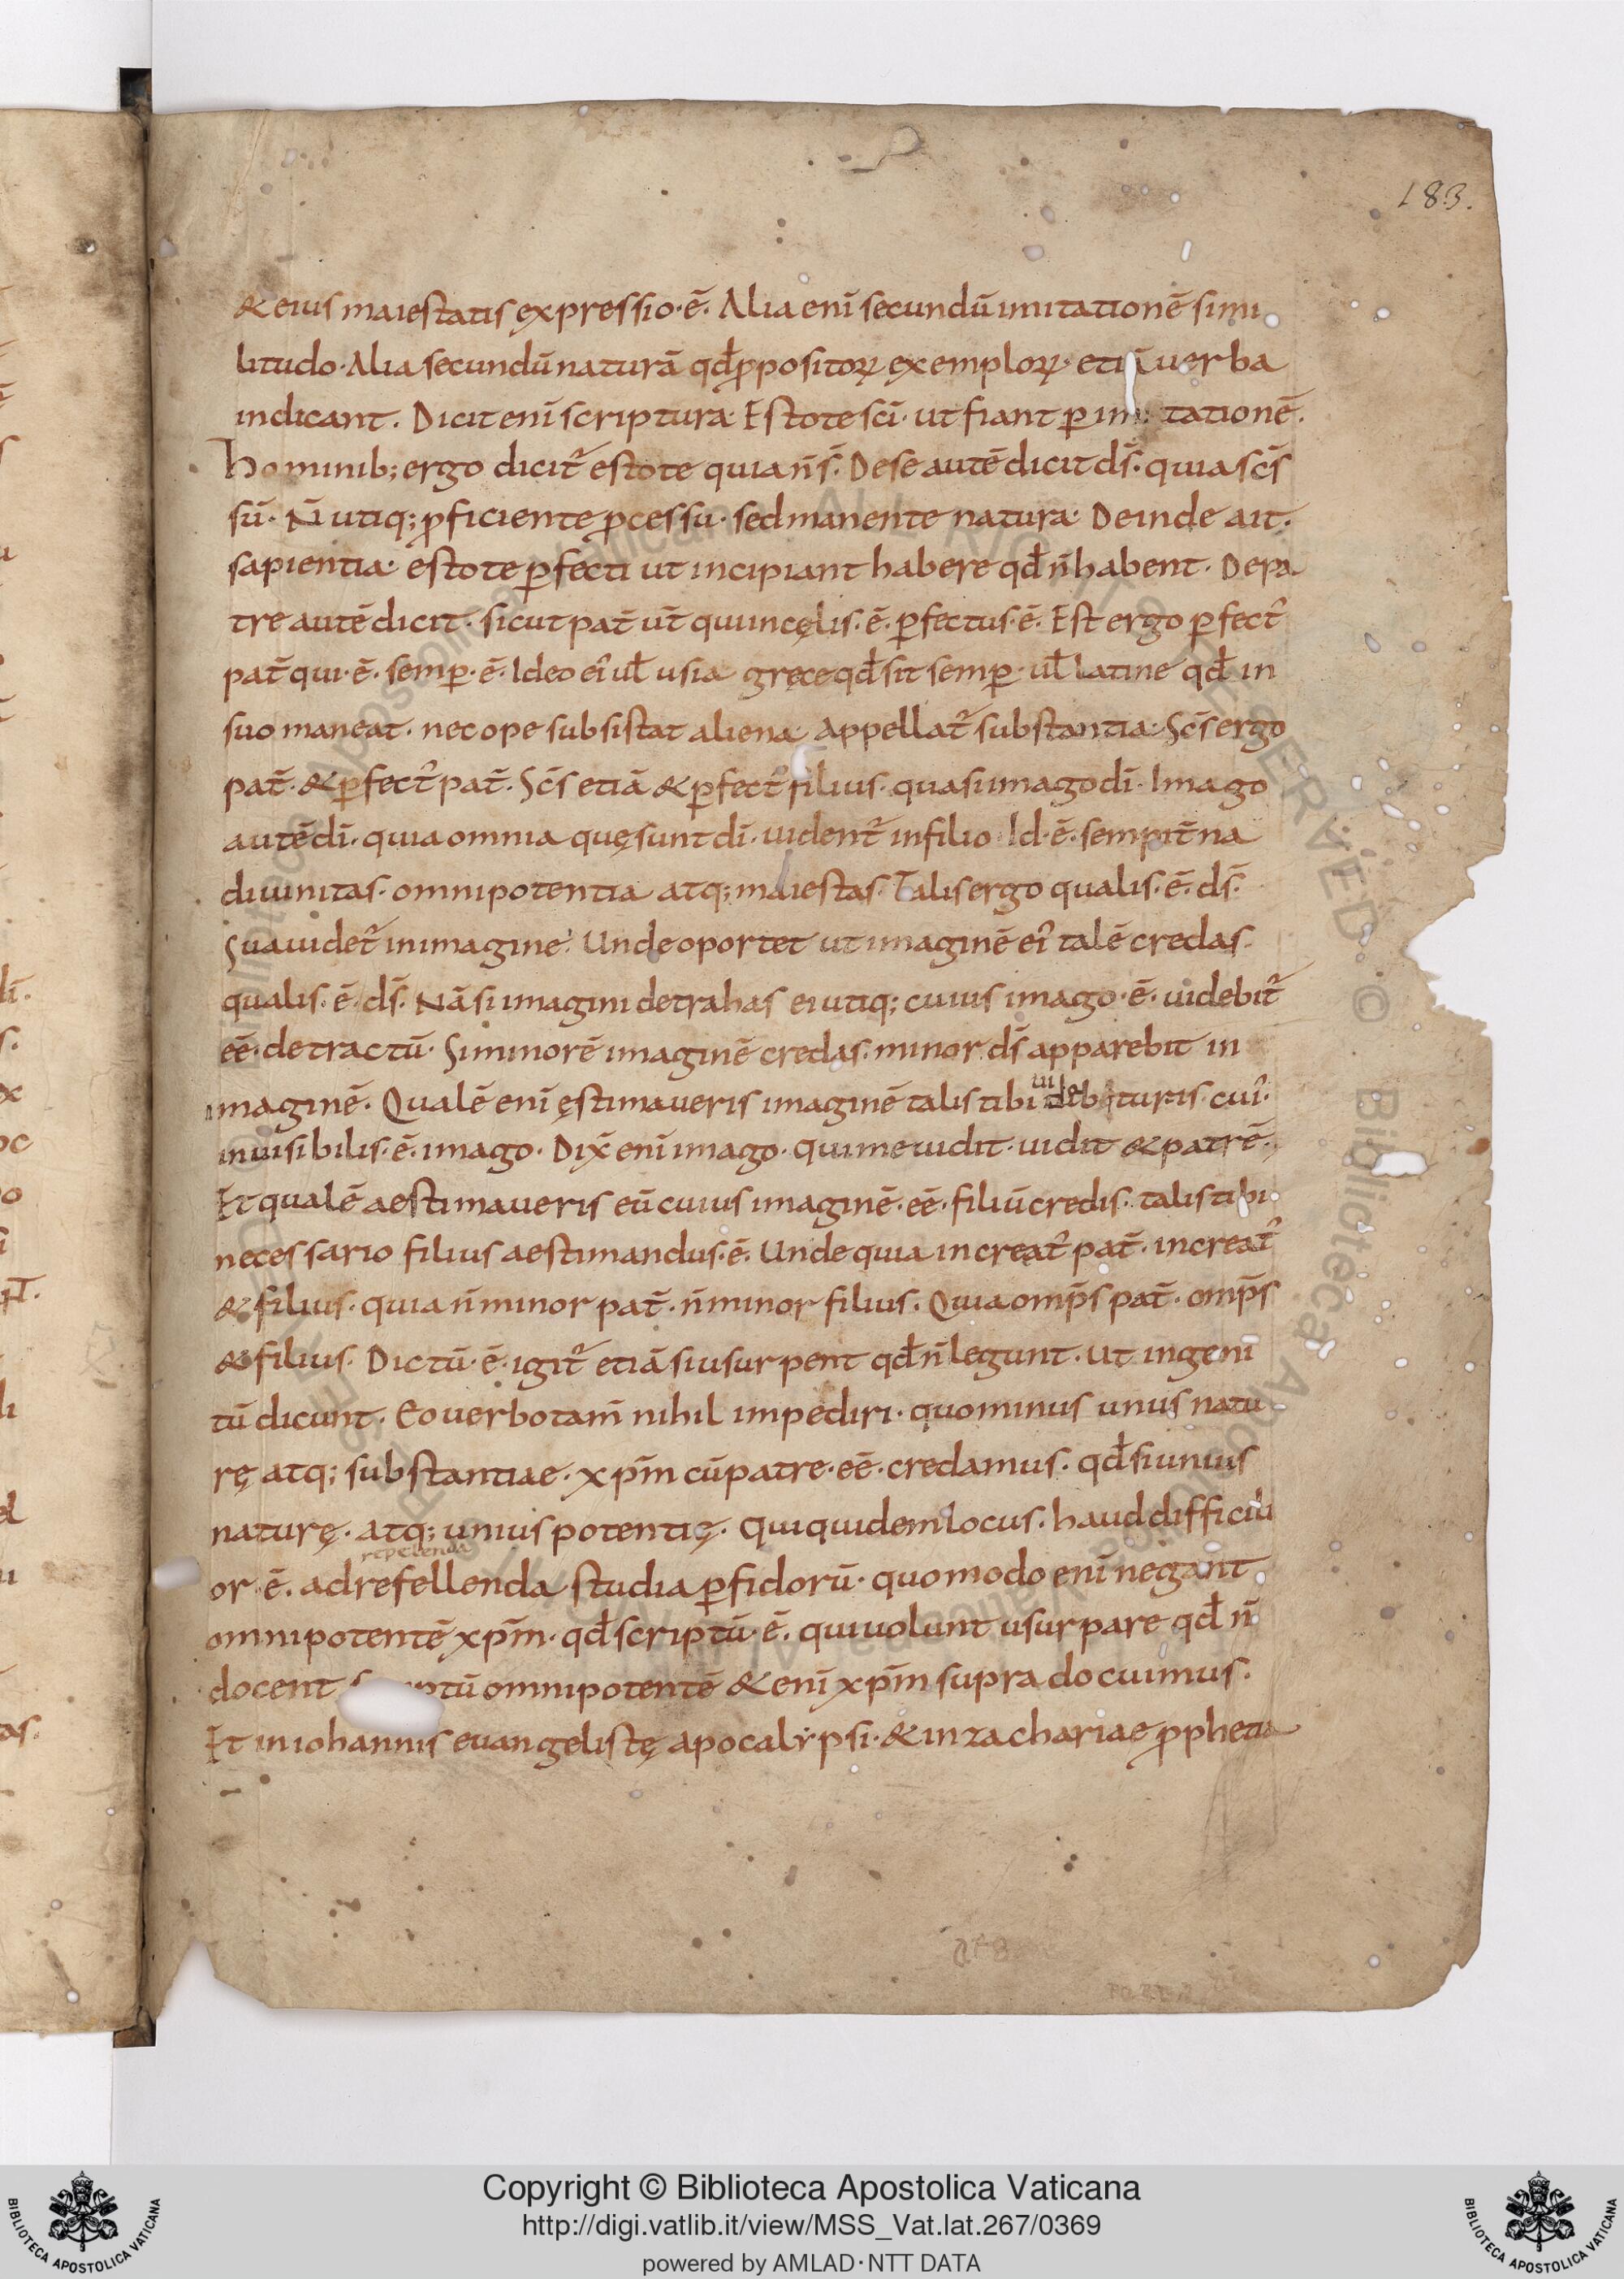 183.
& eius maiestatis expressio·ē. Alia enī secundū imitationē simi
litudo· Alia secundū naturā qđ ꝓpositoꝝ exemploꝝ· etiā uerba
indicant. Dicit enī scriptura· Estote sc̄i· ut fiant ꝑ imi tationē.
hominib; ergo dicit᷒ estote quia n̄ s̄. De se autē dicit d̄s̄· quia sc̄s̄
sū· N̄ utiq; ꝓficiente ꝓcessu· sed manente natura· Deinde ait·
sapientia· estote ꝑfecti ut incipiant habere qđ n̄ habent. De pa
tre autē dicit· sicut pat̄ ut̄ qui in cęlis·ē· ꝑfectus·ē. Est ergo ꝑfect᷒
pat̄ qui·ē· semꝑ·ē· Ideo ei᷒ ul̄ usia gręce qđ sit semꝑ· ul̄ latine qđ in
suo maneat· nec ope subsistat aliena· Appellat᷒ substantia· Sc̄s̄ ergo
pat̄· & ꝑfect᷒ pat̄· Sc̄s̄ etiā & ꝑfect᷒ filius· quasi imago dī· Imago
autē dī· quia omnia quę sunt dī· uident᷒ in filio· Id·ē· sempit̄na
diuinitas· omnipotentia atq; maiestas· Talis ergo qualis·ē· d̄s̄·
Sua uidet᷒ in imagine· Unde oportet ut imaginē ei᷒ talē credas·
qualis·ē· d̄s̄. Nā si imagini detrahas ei utiq; cuius imago·ē· uidebit᷒
eē· detractū· Si minorē imaginē credas· minor d̄s̄ apparebit in
imaginē. Qualē enī ęstimaueris imaginē talis tibi uidebituris· cui᷒
inuisibilis·ē· imago· Dix̄ enī imago· Qui me uidit· uidit & patrē·
Et qualē aestimaueris eū cuius imaginē·eē· filiū credis· talis tibi
necessario filius aestimandus·ē· Unde quia increat᷒ pat̄· increat᷒
& filius· quia n̄ minor pat̄· n̄ minor filius· Quia omp̄s pat̄· omp̄s
& filius· Dictū·ē· igit᷒ etiā si usurpent qđ n̄ legunt· Ut ingeni
tū dicunt· Eo uerbo tam̄ nihil impediri· quominus unius natu
rę atq; substantiae· xp̄m cū patre·eē· credamus· qđ si unius
naturę· atq; unius potentię· Qui quidem locus· haud difficili
repelenda
or·ē· ad refellenda studia ꝑfidorū· quomodo enī negant
omnipotentē xp̄m· qđ scriptū·ē· qui uolunt usurpare qđ n̄
docent omnipotentē & enī xp̄m supra docuimus·
Et in iohannis euangelistę apocalypsi· & in zachariae ꝓphetia
Copyright © Biblioteca Apostolica Vaticana
http://digi.vatlib.it/view/MSS_Vat.lat.267/0369
powered by AMLAD · NTT DATA
BIBLIOTECA APOSTOLICA VATICANA
BIBLIOTECA APOSTOLICA VATICANA